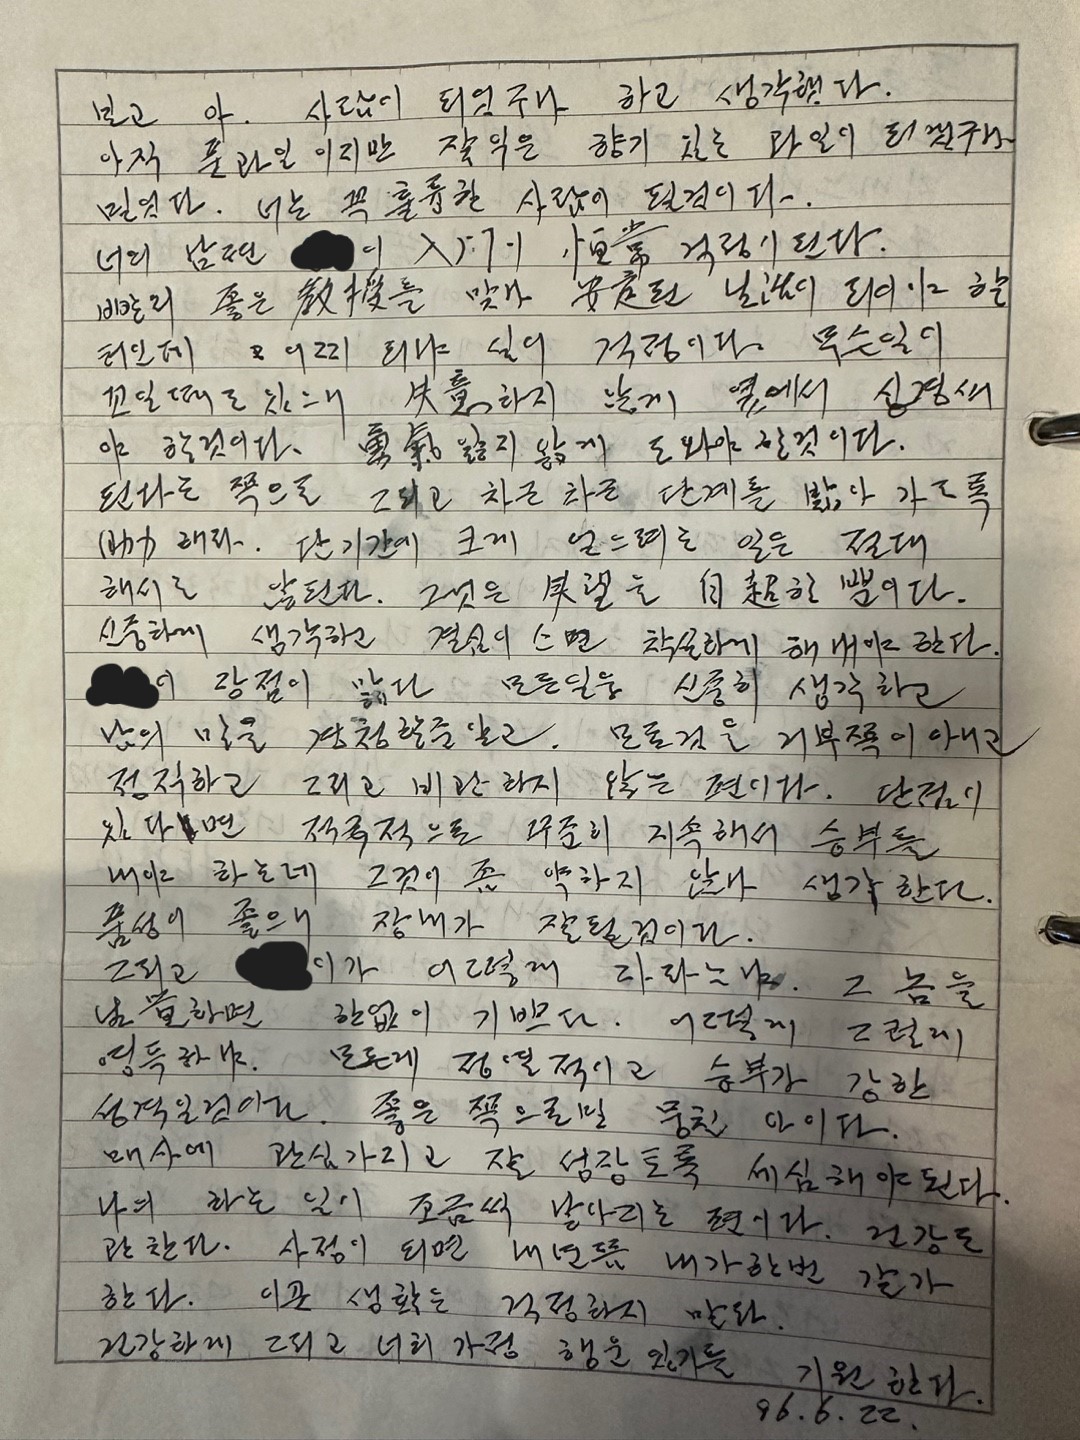 보고 아. 사람이 되었구나 하고 생각했다.
아직 풋과일이지만 잘익은 향기 있는 과일이 되겠구나
믿었다. 너는 꼭 훌륭한 사람이 될것이다.
너의 남편 이 入門이 恒常 걱정이된다.
빨리 좋은 敎授를 맞나 安定된 날들이 되어야 할
터인데 어찌 되냐 싶어 걱정이다. 무슨일이
꼬일때도 있으니 失意하지 않게 옆에서 신경써
야 할것이다. 勇氣 잃지 않게 도와야 할것이다.
된다는 쪽으로 그리고 차근 차근 단계를 밟아 가도록
해라. 단기간에 크게 얻으려는 일은 절대
해서는 않된다. 그것은 失望을 自招할 뿐이다.
신중하게 생각하고 결심이 스면 착실하게 해 내야 한다.
이 장점이 많다 모든일을 신중히 생각하고
남의 말을 경청할줄 알고. 모든것을 거부쪽이 아니고
정직하고 그리고 비관하지 않는 편이다. 단점이
있다면 적극적으로 꾸준히 지속해서 승부를
내야 하는데 그것이 좀 약하지 않나 생각한다.
품성이 좋으니 장래가 잘될것이다.
그리고 이가 어떻게 자라는냐. 그 놈을
하면 한없이 기쁘다. 어떻게 그렇게
영특하냐. 모든게 정열적이고 승부가 강한
성격일것이다. 좋은 쪽으로만 뭉친 아이다.
매사에 관심가지고 잘 성장토록 세심해야된다.
나의 하는 일이 조금씩 나아지는 편이다. 건강도
괜찮다. 사정이 되면 내년쯤 내가한번 갈가
한다. 이곳 생활은 걱정하지 말라.
건강하게 그리고 너희 가정 행운 있기를 기원 한다.
96. 6. 22.